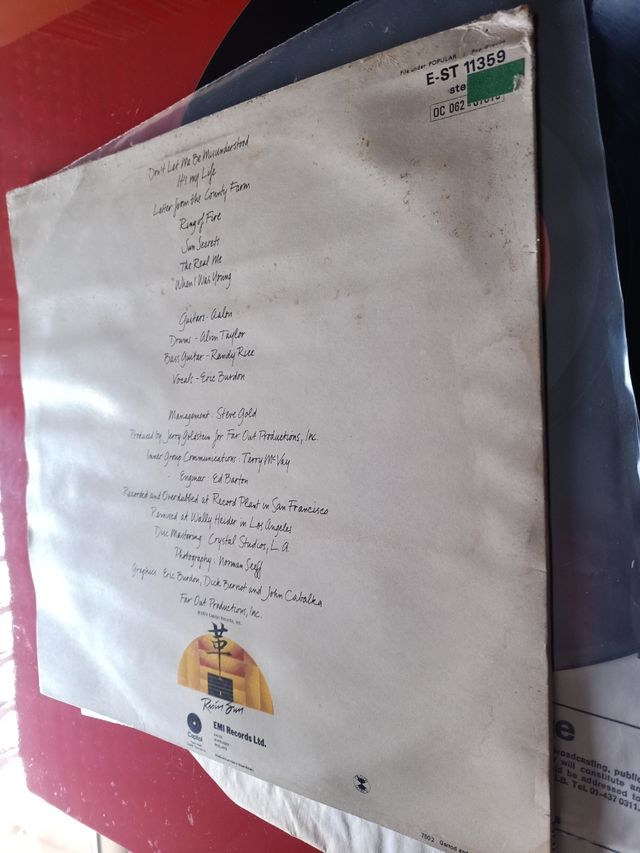 File under POPULAR : Pop Groups
E-ST 11359
ste
OC 062
Don't Let Me Be Misunderstood
It's my Life
Letter from the County Farm
Ring of Fire
Sun Secrets
The Real Me
When I Was Young
Guitars - Aalon
Drums - Alvin Taylor
Bass Guitar - Randy Rice
Vocals - Eric Burdon
Management : Steve Gold
Produced by Jerry Goldstein for Far Out Productions, Inc.
Inner Group Communications : Terry McVay
Engineer : Ed Barton
Recorded and Overdubbed at Record Plant in San Francisco
Remixed at Wally Heider in Los Angeles
Disc Mastering : Crystal Studios, L.A.
Photography : Norman Seeff
Graphics : Eric Burdon, Dick Bernot and John Cabalka
Far Out Productions, Inc.
Capitol Records, Inc.
革
Risin' Sun
Capitol
EMI Records Ltd.
HAYES
MIDDLESEX
ENGLAND
7502 Garrod and
e
broadcasting, public
will constitute an
d be addressed to
LB. Tel. 01-437 0311.